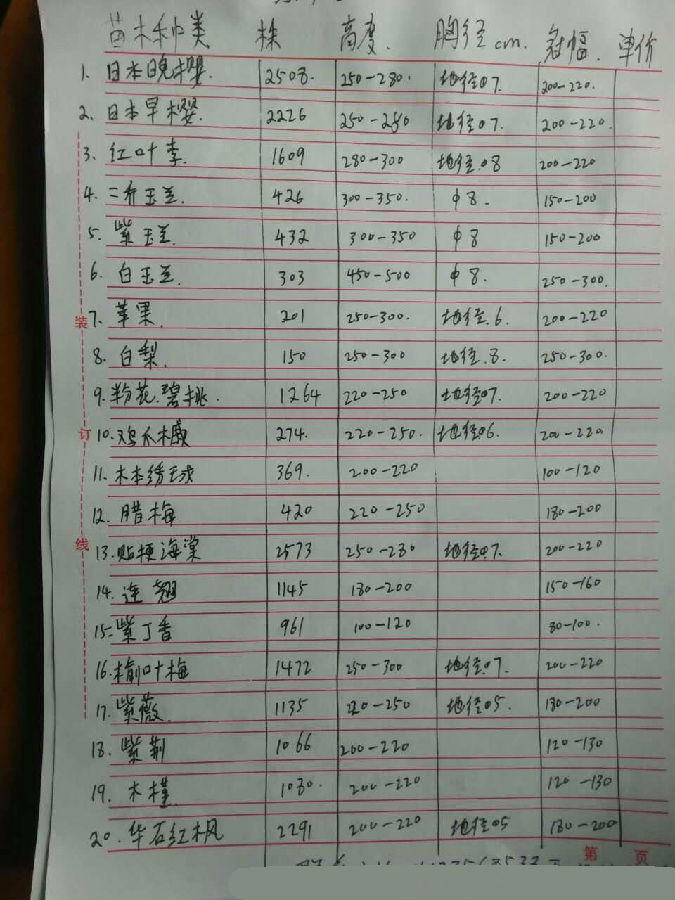 苗木种类 株 高度. 胸径cm. 冠幅. 单价
1. 日本晚樱. 2508. 250-280. 地径07. 200-220.
2. 日本早樱. 2226 250-280 地径07. 200-220.
3. 红叶李. 1609 280-300 地径.08 200-220
4. 二乔玉兰. 426 300-350. φ8. 150-200
5. 紫玉兰. 432 300-350 φ8 150-200
6. 白玉兰. 303 450-500 φ8. 250-300.
7. 苹果. 201 250-300. 地径.6. 200-220
8. 白梨. 150 250-300 地径.8. 250-300.
9. 粉花.碧桃. 1264 220-250 地径07. 200-220
10. 鸡爪槭 274. 220-250. 地径06. 200-220
11. 木本绣球 369. 200-220 100-120
12. 腊梅 420 220-250 180-200
13. 贴梗海棠 2573 250-280 地径07. 200-220
14. 连翘 1145 180-200 150-160
15. 紫丁香 961 100-120 80-100.
16. 榆叶梅 1472 250-300 地径07. 200-220
17. 紫薇. 1135 220-250 地径05. 180-200
18. 紫荆 1066 200-220 120-130
19. 木槿 1080. 200-220 120-130
20. 华石红枫 2291 200-220 地径05 180-200
装
订
线
第 页